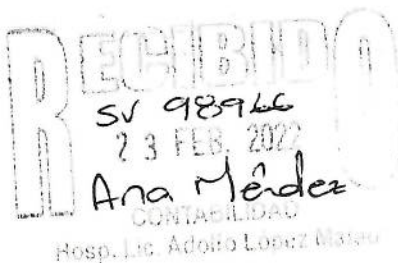 RECIBIDO
SV 98966
23 FEB. 2022
Ana Méndez
CONTABILIDAD
Hosp. Lic. Adolfo López Mateo